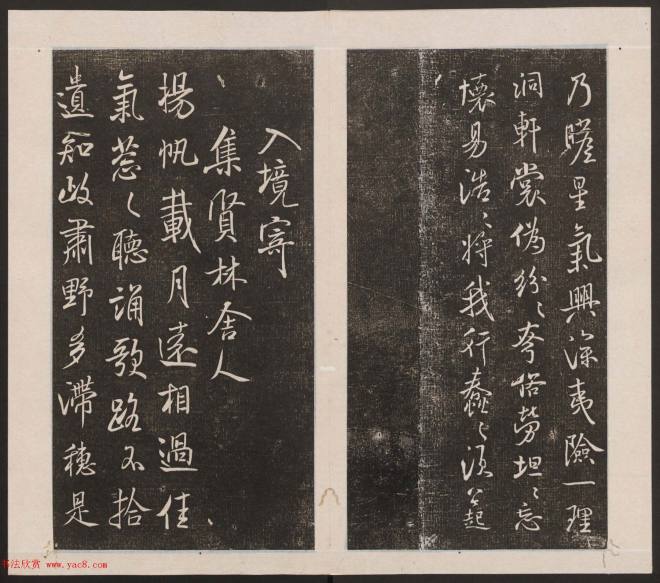 乃瞻星氣興深夷險一理
洞軒裳偽紛〻夸俗勞坦〻忘
懷易浩〻將我行蠢〻須公起
入境寄
集賢林舍人
揚帆載月遠相過佳
氣葱〻聽誦歌路不拾
遺知政肅野多滯穗是
书法欣赏 www.yac8.com